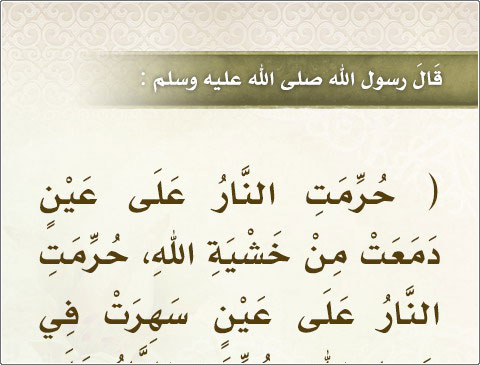 قَالَ رسول الله صلى الله عليه وسلم :
( حُرِّمَتِ النَّارُ عَلَى عَيْنٍ
دَمَعَتْ مِنْ خَشْيَةِ اللهِ، حُرِّمَتِ
النَّارُ عَلَى عَيْنٍ سَهِرَتْ فِي